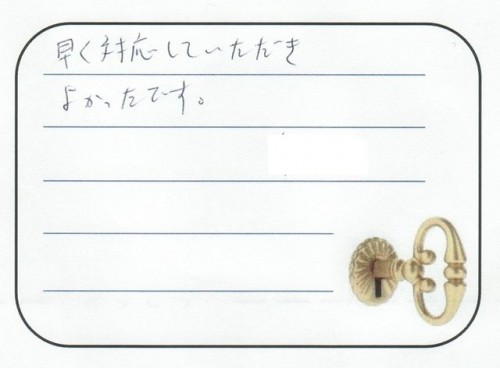 早く対応していただき
よかったです。